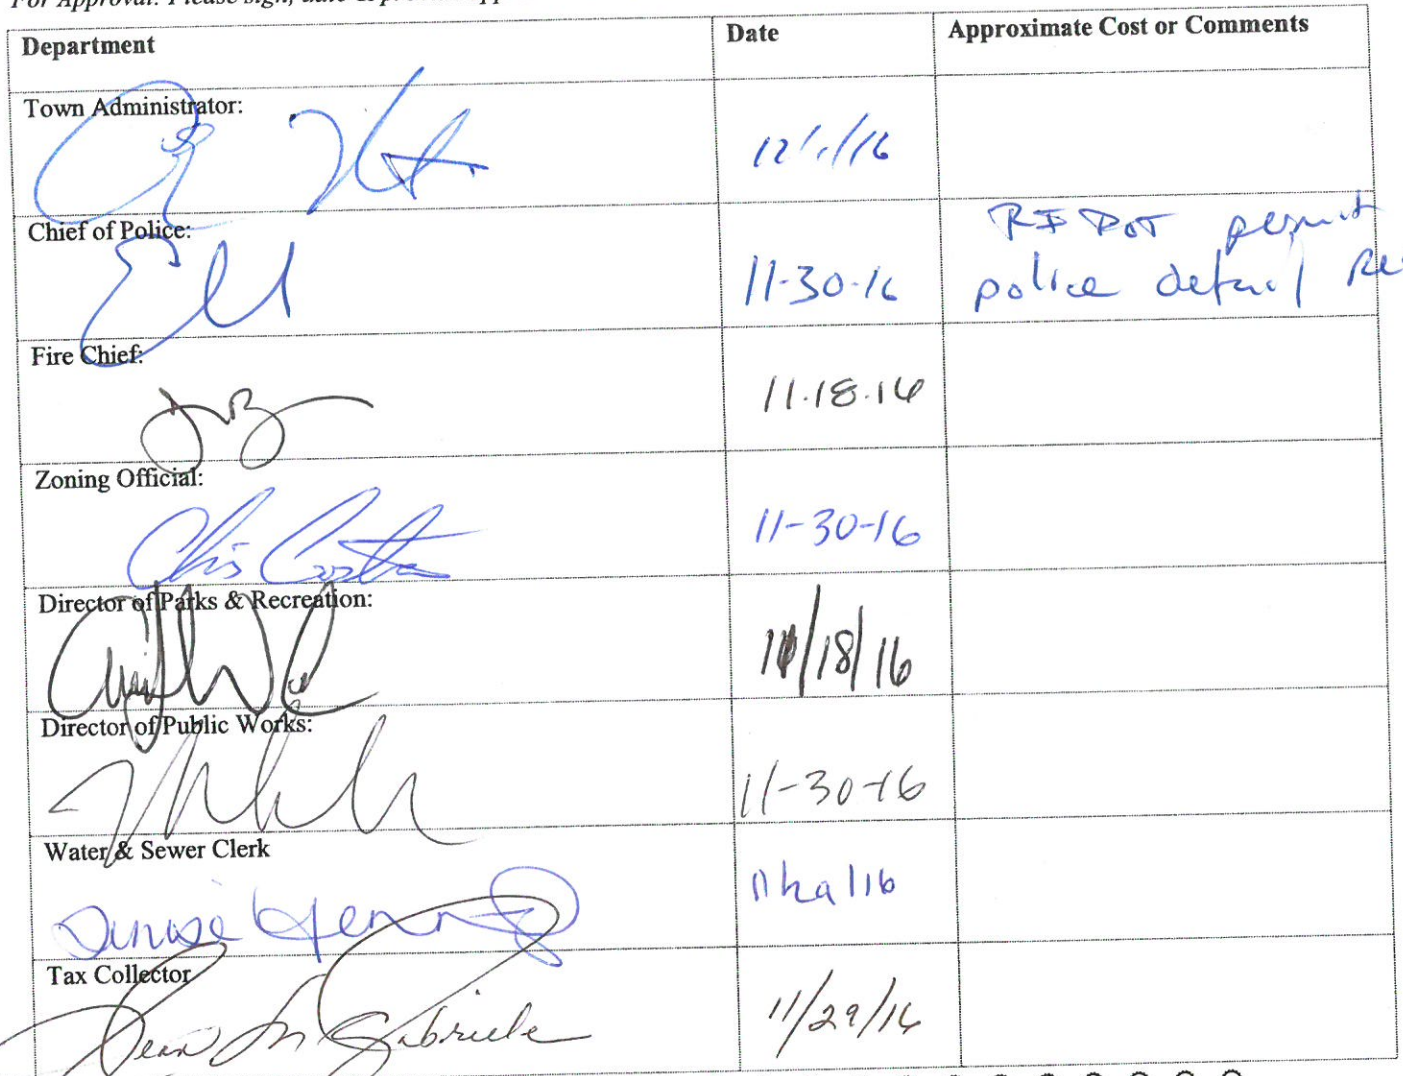 For Approval: Please sign, date &
Department Date Approximate Cost or Comments
Town Administrator:
12/1/16
Chief of Police:
RI DOT permit
11-30-16 police detail Re
Fire Chief:
11.18.16
Zoning Official:
Chris Costa 11-30-16
Director of Parks & Recreation:
11/18/16
Director of Public Works:
11-30-16
Water & Sewer Clerk
Denise 11/29/16
Tax Collector
Gabriele 11/29/16